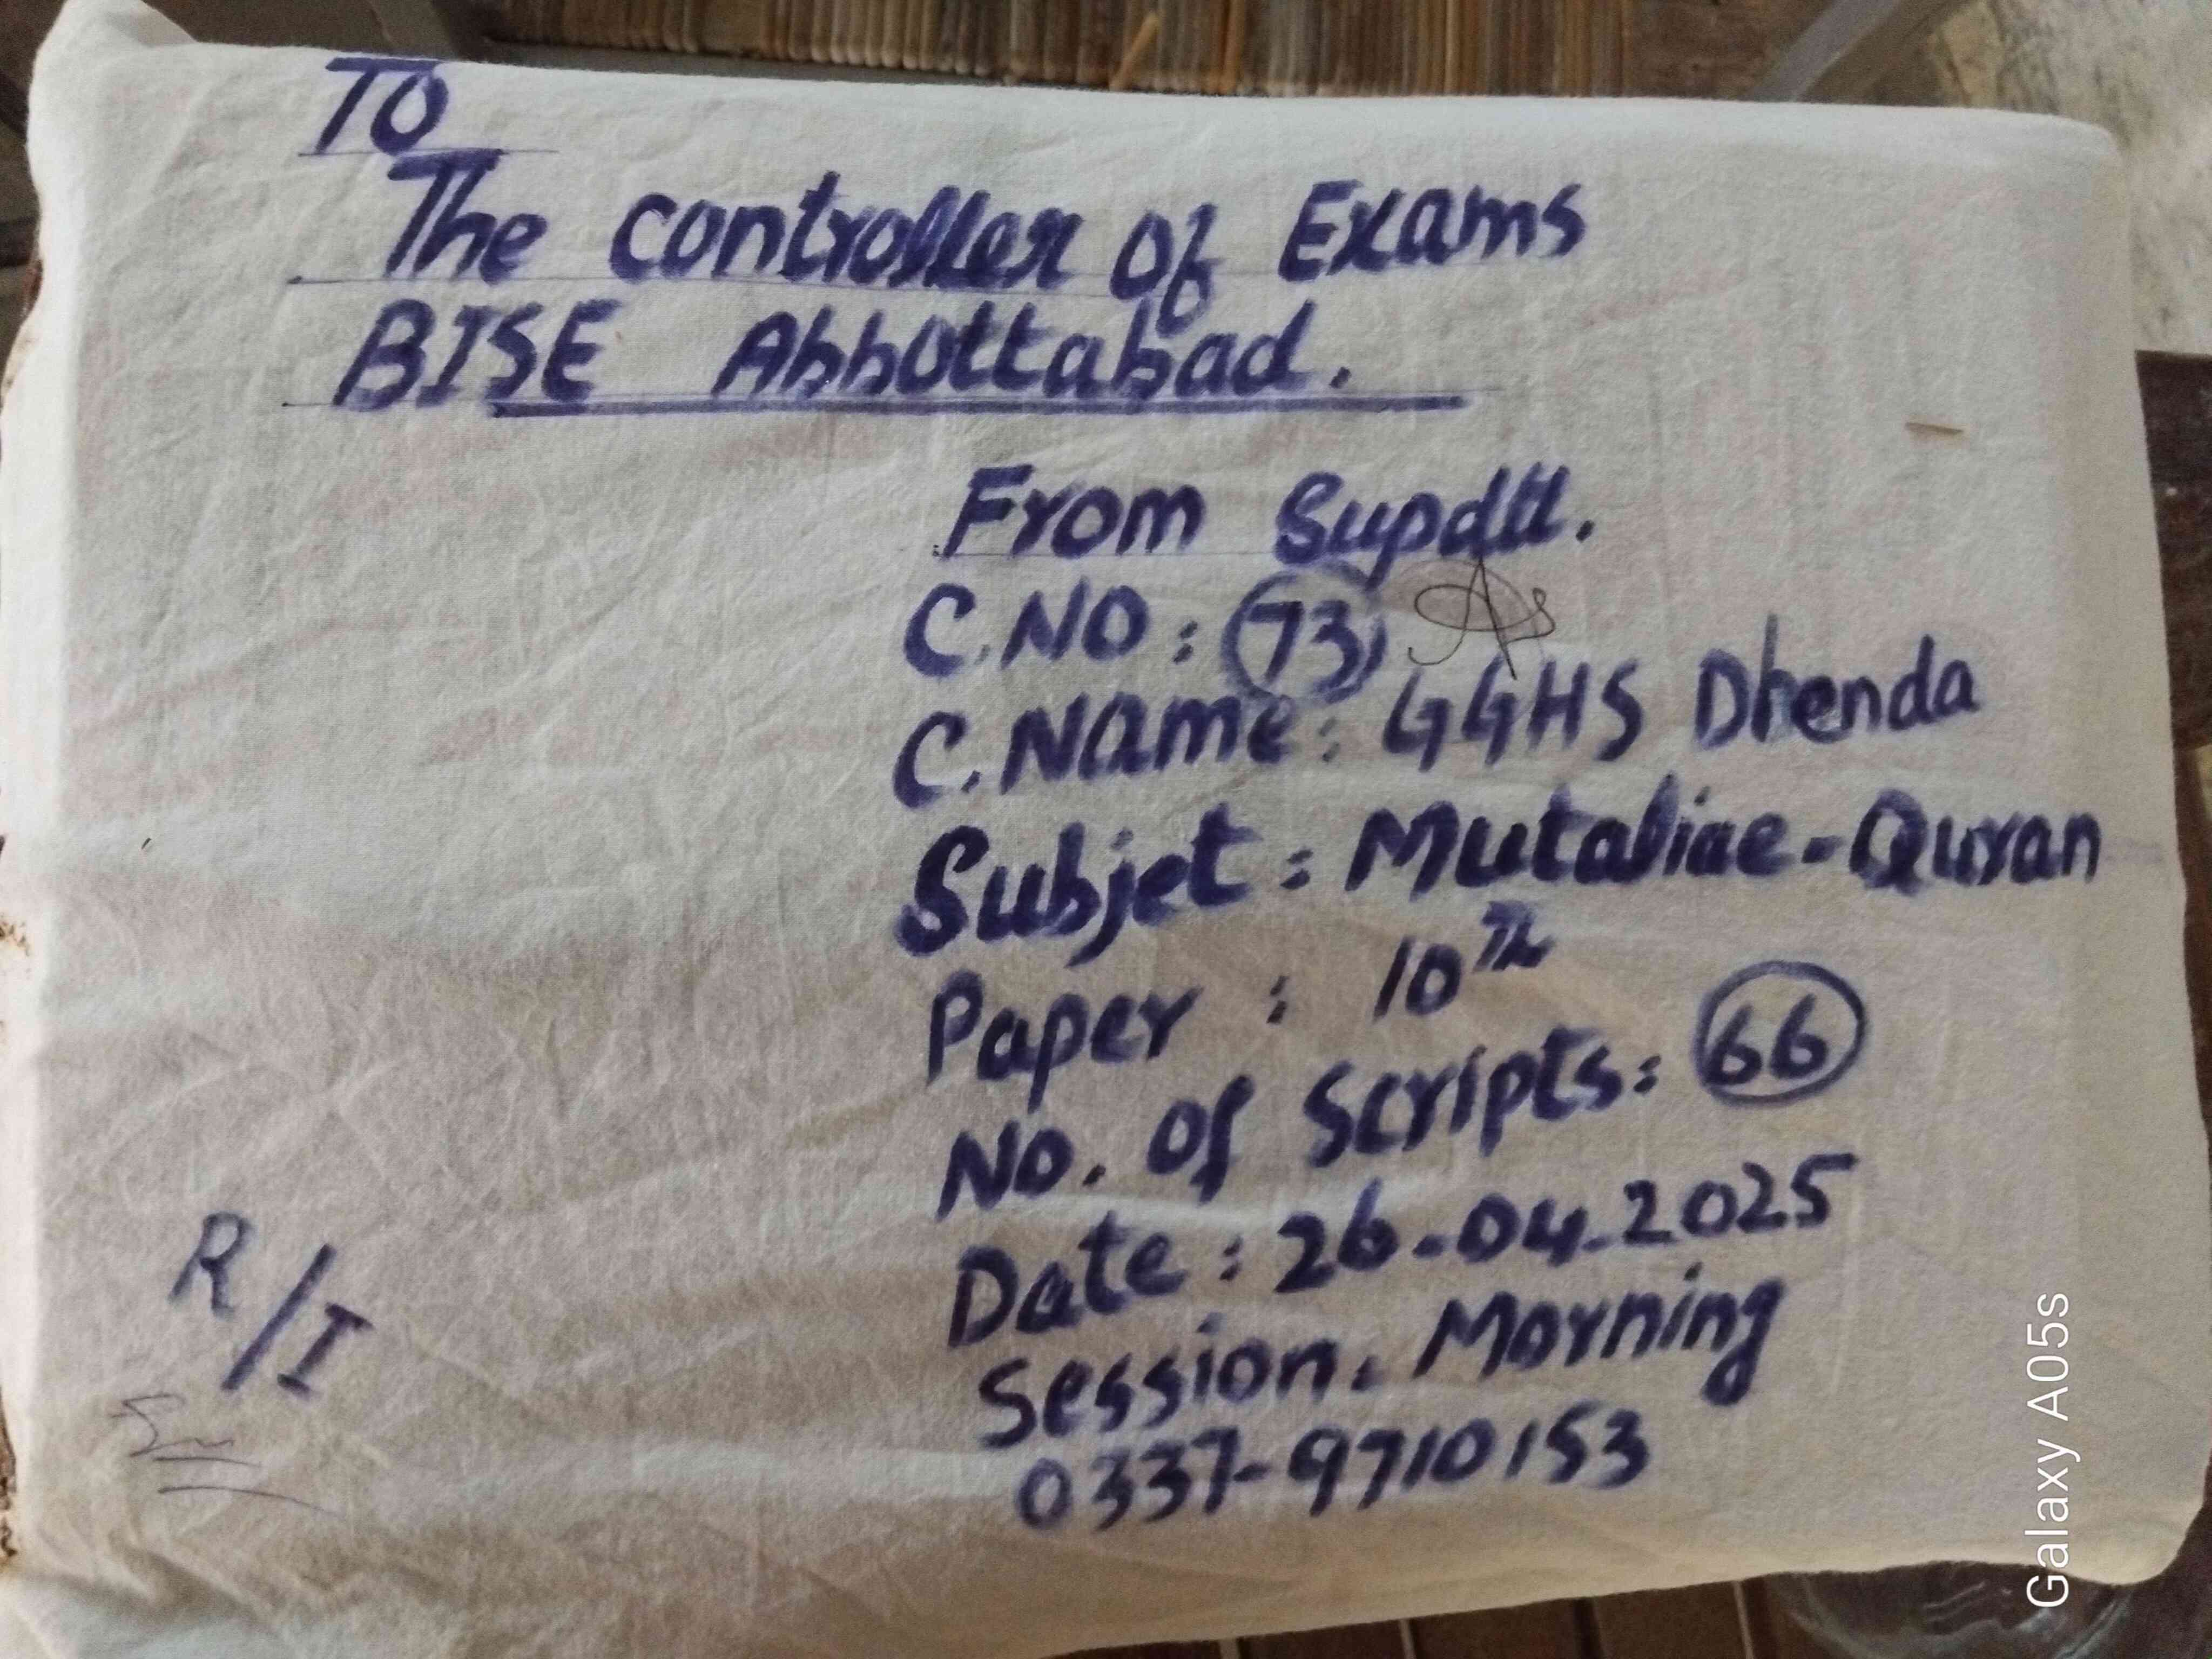 To
The controller of Exams
BISE Abbottabad.
From Supdtt.
C.NO: 73
C.Name: GGHS Dhenda
Subjet: Mutaliae-Quran
Paper: 10th
No. of Scripts: 66
Date: 26-04-2025
Session: Morning
0337-9710153
R/I
Galaxy A05s